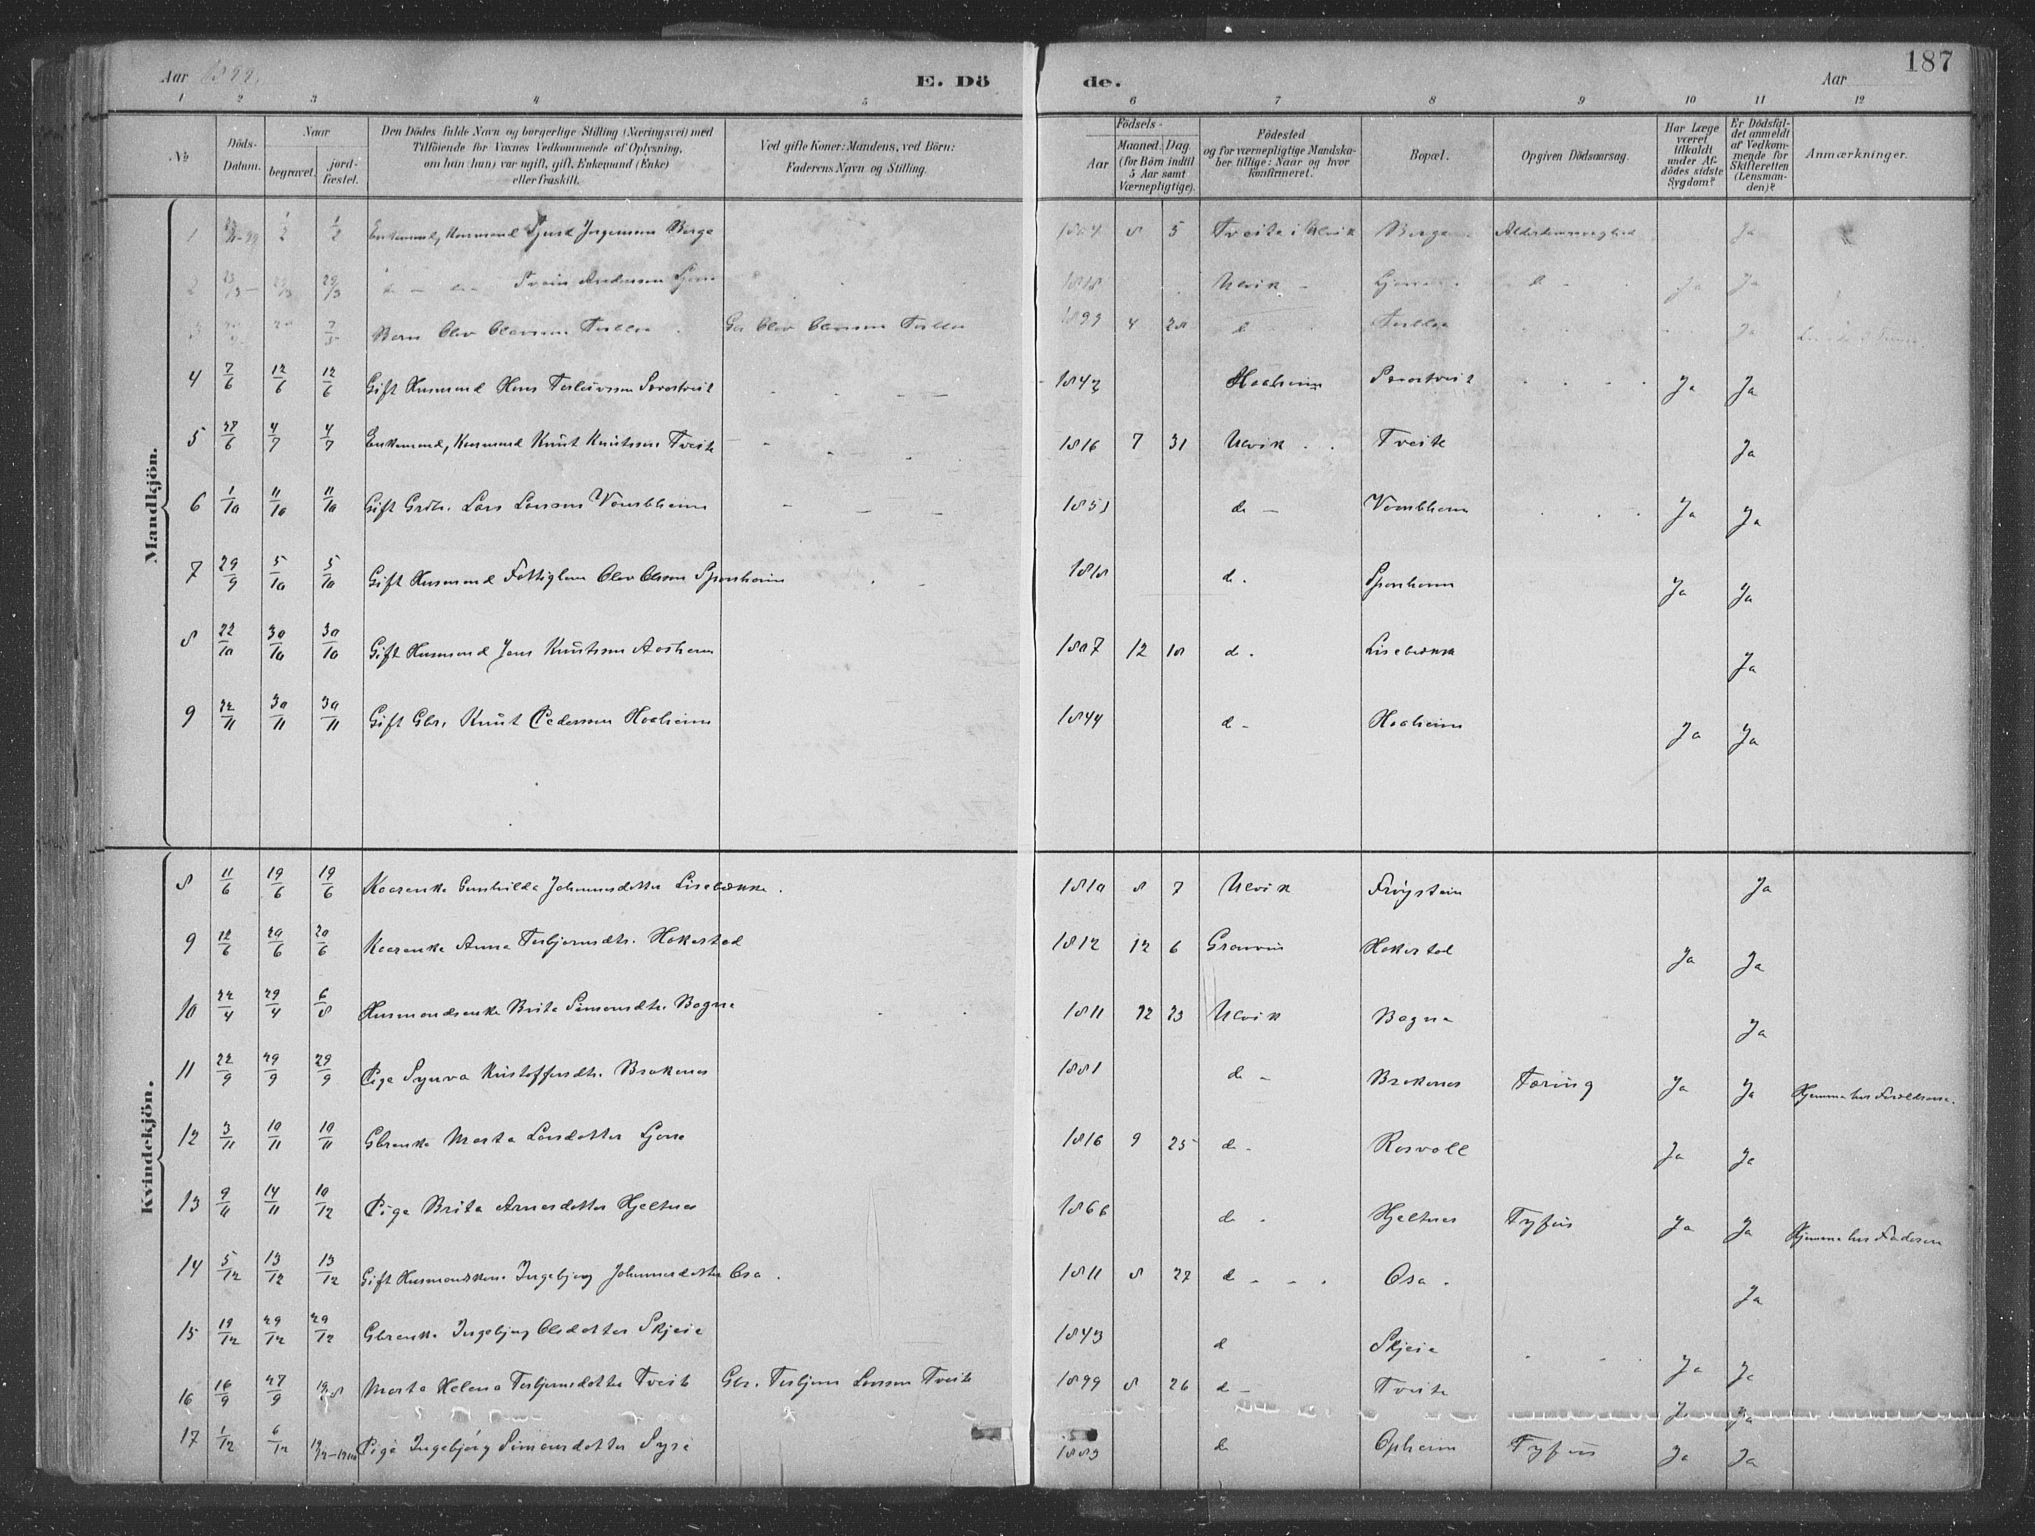 187
Aar 1899. E. Dö de. Aar
1 2 3 4 5 6 7 8 9 10 11 12
№ Döds-Datum. Naar begravet. jordfæstet. Den Dödes fulde Navn og borgerlige Stilling (Næringsvei) med Tilföiende for Voxnes Vedkommende af Oplysning, om han (hun) var ugift, gift, Enkemand (Enke) eller fraskilt. Ved gifte Koner: Mandens, ved Börn: Faderens Navn og Stilling. Födsels- Aar Maaned Dag (for Börn indtil 5 Aar samt Værnepligtige). Födested og for værnepligtige Mandskaber tillige: Naar og hvor konfirmeret. Bopæl. Opgiven Dödsaarsag. Har Læge været tilkaldt under Afdödes sidste Sygdom? Er Dödsfaldet anmeldt af Vedkommende for Skifteretten (Lensmanden)? Anmærkninger.
Mandkjön.
1 1/2 1/2 Enkemand, Sjurd Jørgensen Berge 8 5 Tveite i Ulvik Berge Alderdomssvaghed Ja
2 29/3 Svein Andersen Ljono 1818 Ulvik Ja Ja
3 Barn Olav Olavsen Gbr Olav Olavsen 1899 4 28 d Ja
4 7/6 12/6 12/6 Gift Husmand Hans Torleivsen 1842 Haaheim Ja Ja
5 27/6 4/7 4/7 Enkemand, Husmand Knut Knutsen Tveite 1816 7 31 Ulvik Tveite Ja
6 1/10 11/10 11/10 Gift Grdbr. Lars Larsen Vambheim 185 d Vambheim Ja Ja
7 29/9 5/10 5/10 Gift Husmand Fattiglem Olav Olsen Sponheim 1818 d. Sponheim Ja Ja
8 22/10 30/10 30/10 Gift Husmand Jens Knutsen Aasheim 1807 12 18 d. Lisebrække Ja
9 22/11 30/11 30/11 Gift Gbr. Knut Pedersen Haaheim 1844 d Haaheim Ja Ja
Kvindekjön.
8 11/6 19/6 19/6 Kaarenke Gunhilda Johannesdotter Lisebrække. 1810 8 7 Ulvik Frøystein Ja
9 12/6 20/6 20/6 Kaarenke Anna Torbjørnsdtr. Hakestad 1812 12 6 Granvin Hakestad Ja Ja
10 22/4 29/4 6/8 Husmandsenke Brita Simonsdtr. Bagna 1811 12 23 Ulvik Bagna Ja
11 22/9 29/9 29/9 Pige Synva Kristoffersdtr. Brakenes 1881 d Brakenes Tæring Ja Ja Hjemme hos Forældrene.
12 3/11 10/11 10/11 Gbrenke Marta Larsdotter Ljono 1816 9 25 d. Rosvoll Ja Ja
13 9/11 14/11 10/12 Pige Brita Arnesdotter Hjeltnes 1866 d. Hjeltnes Tyfus Ja Ja Hjemme hos Faderen
14 5/12 13/12 13/12 Gift Husmandskone Ingebjørg Johannesdotter Osa. 1811 8 27 d Osa. Ja
15 19/12 29/12 29/12 Gbrenke Ingebjørg Olsdotter Skjeie 1843 d Skjeie Ja Ja
16 16/9 27/9 Marta Helena Torbjørnsdotter Tveite Gbr. Torbjørn Larsen Tveite 1899 8 26 d Tveite Ja Ja
17 1/12 6/12 Pige Ingebjørg Simonsdotter Syse 1883 d Opheim Tyfus Ja Ja